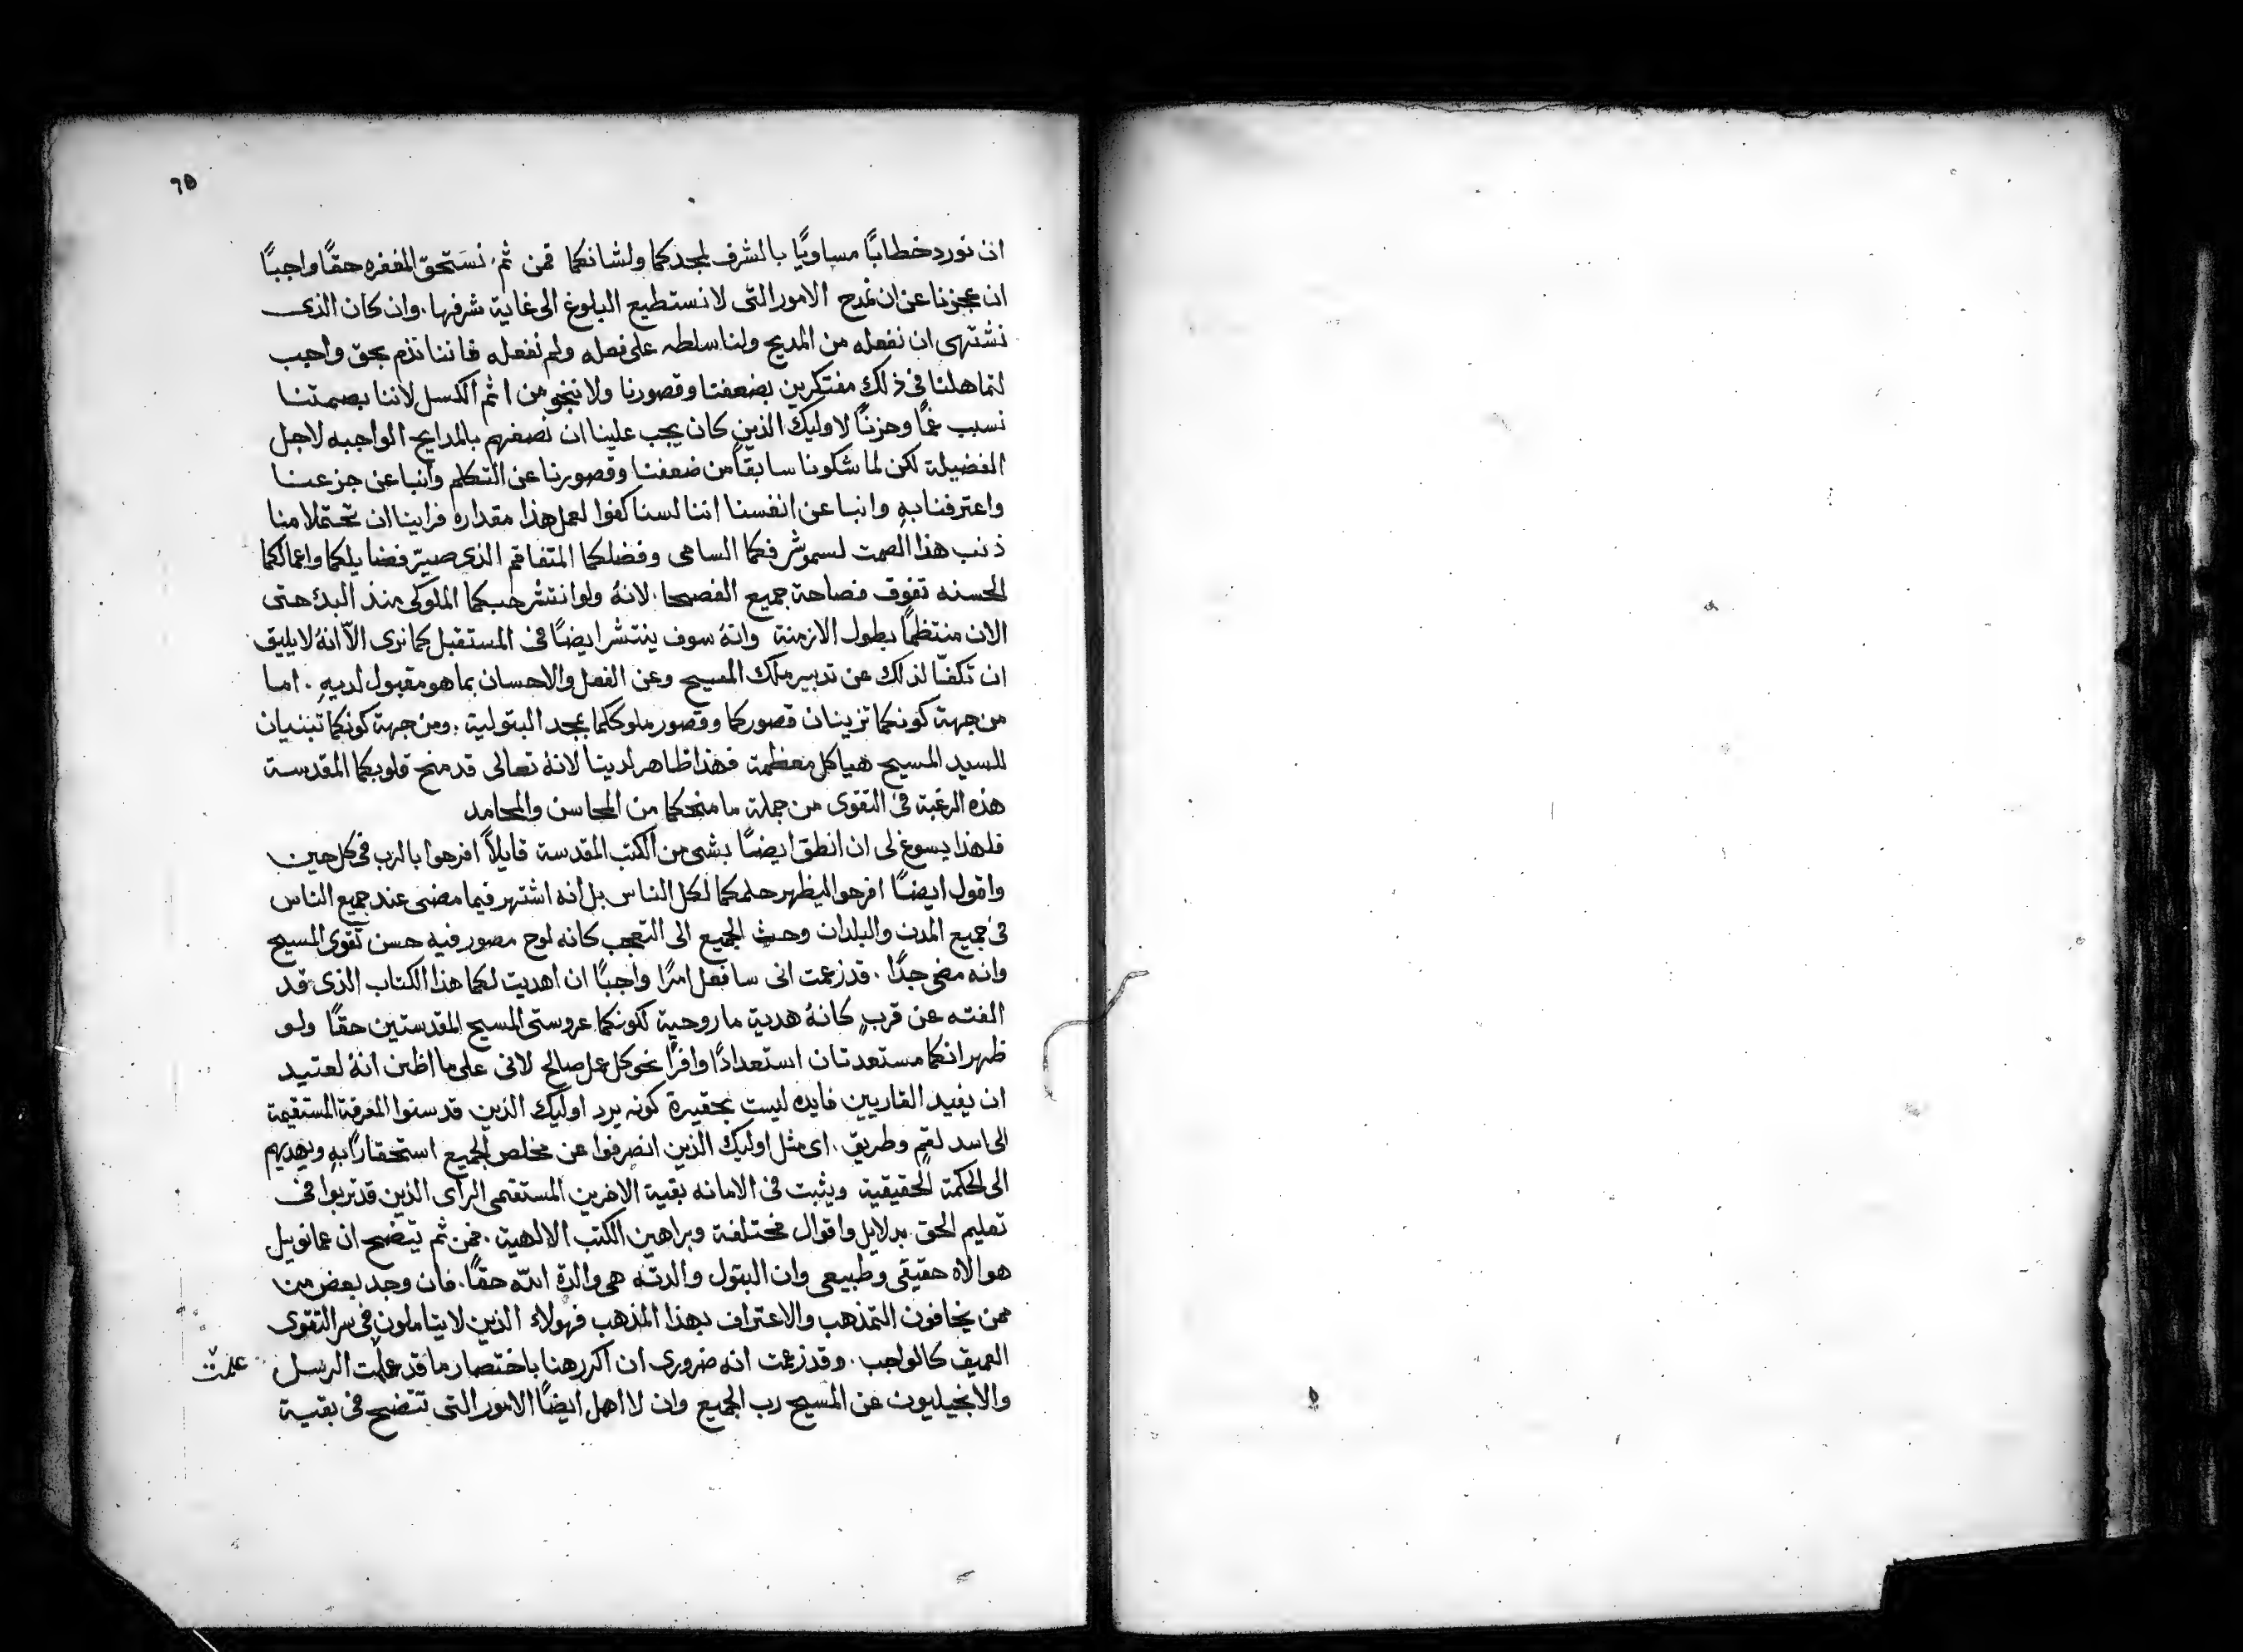 ٦٥
ان نورد خطابًا مساويًا بالشرف لمجدكما ولشانكما فمن ثم نستحق المغفره حقًا واجبًا
ان عجزنا عن ان نمدح الامور التى لا نستطيع البلوغ الى غاية شرفها. وان كان الذى
نشتهى ان نفعله من المديح ولنا سلطه على فعله ولم نفعله فاننا نذم بحق واجب
لتماهلنا فى ذلك مفتكرين بضعفنا وقصورنا ولا ننجو من اثم الكسل لاننا بصمتنا
نسبب غمًا وحزنًا لاوليك الذين كان يجب علينا ان نصفهم بالمدايح الواجبه لاجل
الفضيلة لكن لما شكونا سابقًا من ضعفنا وقصورنا عن التكلم وانبا عن جزعنا
واعترفنا بهِ وانبا عن انفسنا اننا لسنا كفوا لعمل هذا مقداره فراينا ان تحتملا منا
ذنب هذا الصمت لسمو شرفكما السامى وفضلكما المتفاقم الذى صيّر فضايلكما واعمالكما
الحسنه تفوق فصاحة جميع الفصحا. لانهُ ولو انتشر حبكما الملوكى منذ البدء حتى
الان منتظمًا بطول الازمنة وانهُ سوف ينتشر ايضًا فى المستقبل كما نرى الّا انهُ لا يليق
ان تكفّا لذلك عن تدبير ملك المسيح وعن الفعل والاحسان بما هو مقبول لديهِ. اما
من جهة كونكما تزينان قصوركما وقصور ملوككما بمجد البتولية. ومن جهة كونكما تبنيان
للسيد المسيح هياكل معظمة فهذا ظاهر لدينا لانهُ تعالى قد منح قلوبكما المقدسة
هذه الرغبة فى التقوى من جملة ما منحكما من المحاسن والمحامد
فلهذا يسوغ لى ان انطق ايضًا بشى من الكتب المقدسة قايلاً افرحوا بالرب فى كل حين
واقول ايضًا افرحوا ليظهر حلمكما لكل الناس بل انه اشتهر فيما مضى عند جميع الناس
فى جميع المدن والبلدان وحث الجميع الى التعجب كانه لوح مصور فيه حسن تقوى المسيح
وانه مضى جدًا. قد زعمت انى سافعل امرًا واجبًا ان اهديت لكما هذا الكتاب الذى قد
الفته عن قربٍ كانهُ هدية ما روحية لكونكما عروستى المسيح المقدستين حقًا ولو
ظهر انكما مستعدتان استعدادًا وافرًا نحو كل عمل صالح لانى على ما اظن انهُ لعتيد
ان يفيد القاريين فايده ليست بحقيرة كونه يرد اوليك الذين قد سنوا المعرفة المستقيمة
الى اسد لقم وطريق. اى مثل اوليك الذين انصرفوا عن مخلص الجميع استحقارًا بهِ ويهديهم
الى الحكمة الحقيقية ويثبت فى الامانه بقية الاخرين المستقيمى الراى الذين قد تربوا فى
تعليم الحق بدلايل واقوال مختلفة وبراهين الكتب الالهية. فمن ثم يتضح ان عمانوييل
هو الاه حقيقى وطبيعى وان البتول والدته هى والدة الله حقًا. فان وجد بعض من
ممن يخافون التمذهب والاعتراف بهذا المذهب فهولاء الذين لا يتاملون فى سر التقوى
العميق كالواجب. وقد زعمت انه ضرورى ان اكرر هنا باختصار ما قد علمت الرسل
علمت
والانجيليون عن المسيح رب الجميع وان لا اهمل ايضًا الامور التى تتضح فى بقية